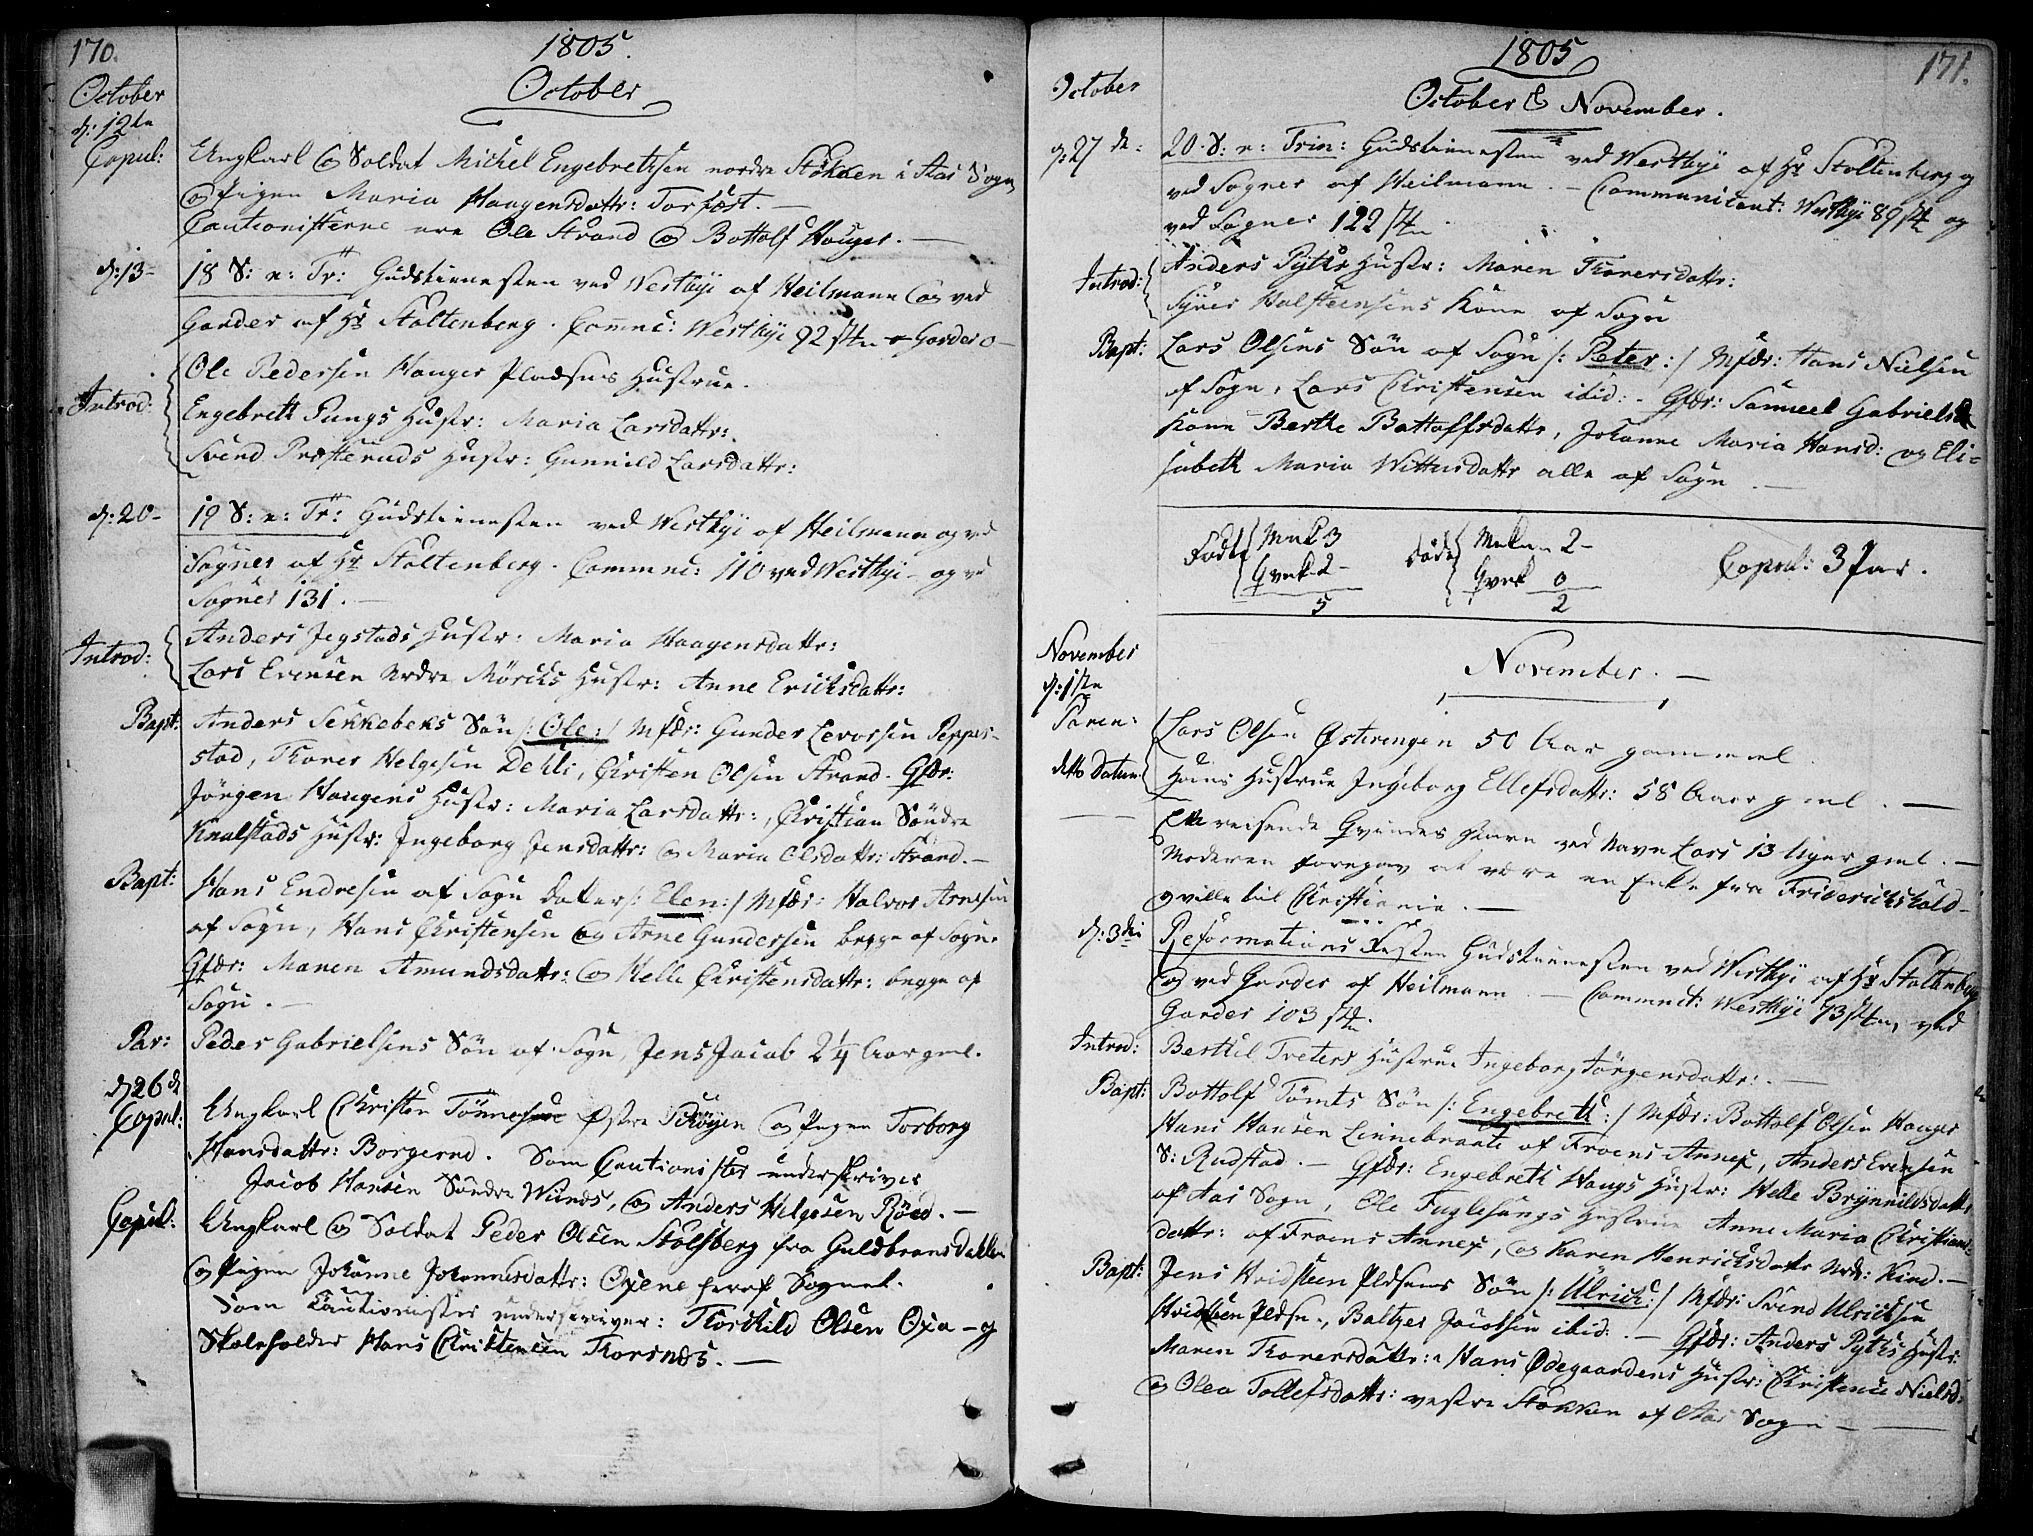 170.
1805.
October
October
d: 12te
Copul: Ungkarl og Soldat Michel Engebrethsen nordre Stökken i Aas Sogn
og Pigen Maria Haagensdattr: Torfæst. —
Cautionisterne ere Ole Strand og Bottolf Houger. —
d: 13 - 18 S: e: Tr: Gudstienesten ved Westbye af Heilmann og ved
Garder af Hr Stoltenberg. Commc: Westbye 92 stkr Garder 0 -
Introd: Ole Pedersen Hauger Pladsens Hustrue.
Engebreth Pungs Hustr: Maria Larsdattr:
Svend Præsteruds Hustr: Gunnild Larsdattr:
d: 20 - 19 S: e: Tr: Gudstienesten ved Westbye af Heilmann og ved
Sogner af Hr Stoltenberg. Commc: 110 ved Westbye - og ved
Sogner 131. —
Introd: Anders Jegstads Hustr: Maria Haagensdattr:
Lars Evensen Nordre Mörchs Hustr: Anne Erichsdattr:
Bapt: Anders Sekkebeks Sön /: Ole :/ Mfdr: Gunder Levorsen Pepper-
stad, Thorer Helgesen Dehli, Christen Olsen Strand. Gfdr:
Jörgen Haugens Hustr: Maria Larsdattr:, Christian Söndre
Knalstads Hustr: Ingeborg Jensdattr: og Maria Olsdattr: Strand. —
Bapt: Hans Endresen af Sogn datter /: Elen :/ Mfdr: Halvor Arnesen
af Sogn, Hans Christensen og Arne Gundersen begge af Sogn.
Gfdr: Maren Amundsdattr: og Helle Christensdattr: begge af
Sogn. —
Par: Peder Gabrielsens Sön af Sogn, Jens Jacob 2¼ Aar gml.
d 26de
Copul: Ungkarl Christen Tönnesen Østre Skøyen og Pigen Torborg
Hansdattr: Borgerud. Som Cautionister underskriver
Jacob Hansen Söndre Wiinds, og Anders Helgesen Röed. —
Copul: Ungkarl og Soldat Peder Olsen Stolsberg fra Guldbransdahlen
og Pigen Johanne Johannesdattr: Oxene her af Sognet.
Som Cautionister underskriver: Thorkild Olsen Oxa - og
Skoleholder Hans Christensen Thorsnæs. —
171.
1805
October
October & November.
d: 27de - 20. S: e: Trin: Gudstienesten ved Westbye af Hr Stoltenberg og
ved Sogner af Heilmann. — Communicant: Westbye 89 stkr og
ved Sogner 122 stkr
Introd: Anders Pytts Hustr: Maren Thorersdattr:
Syver Halsteensens Kone af Sogn
Bapt: Lars Olsens Sön af Sogn /: Peter :/ Mfdr: Hans Nielsen
af Sogn, Lars Christensen ibid: - Gfdr: Samuel Gabriels
Kone Berthe Bottolfsdattr, Johanne Maria Hansd: og Eli-
sabeth Maria Wittusdattr alle af Sogn —
Födte Mnk 3 Døde Mnk 2 - Copul: 3 Par.
Qvek 2 - Qvek 0
5 2
November
November. —
d: 1ste
Paren: Lars Olsen Østerengen 50 Aar gammel.
ditto Datum Hans Hustrue Ingeborg Ellefsdattr: 58 Aar gml. —
— — En reisende Qvindes Barn ved Navn Lars 13 Uger gml. —
Moderen foregav at være en Enke fra Friderichshald -
og ville til Christiania. —
d: 3die Reformations Festen Gudstienesten ved Westbye af Hr Stoltenberg
og ved Garder af Heilmann. — Communct: Westbye 73 stkr, ved
Garder 103 stkr.
Introd: Berthel Treters Hustrue Ingeborg Jörgensdattr: —
Bapt: Bottolf Tömts Sön /: Engebreth :/ Mfdr: Bottolf Olsen Hauger
Hans Hansen Linnebraate af Froens Annex, Anders Evensen
S: Rudstad. — Gfdr: Engebreth Haugs Hustr: Helle Brynnildsdattr
af Aas Sogn, Ole Fuglesangs Hustrue Anne Maria Christians-
dattr: af Froens Annex, og Karen Henrichsdattr Nrdr: Kind. —
Bapt: Jens Hvidsteen Pldsens Sön /: Ulrich :/ Mfdr: Svend Ulrichsen
Hvidsteen Pldsn, Baltzer Jacobsen ibid: — Gfdr: Anders Pytts Hustr:
Maren Thorersdattr:, Hans Ødegaardens Hustr: Christense Nielsd:
og Olea Tollefsdattr: vestre Stökken af Aas Sogn —